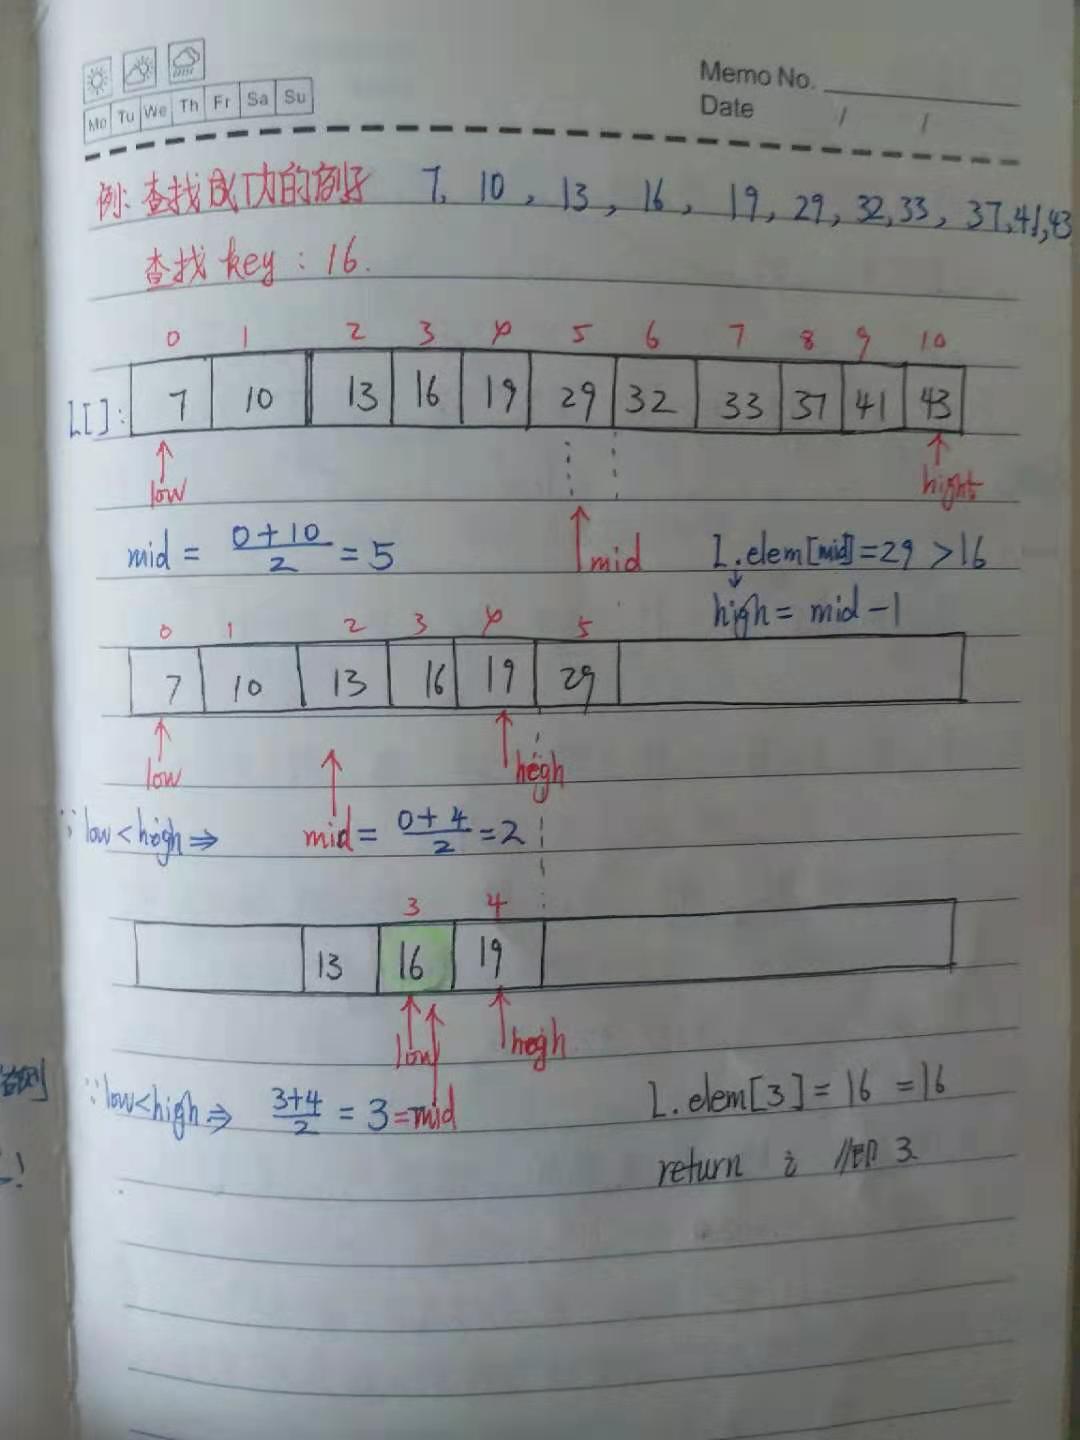 Memo No.
Mo Tu We Th Fr Sa Su
Date / /
例: 查找成功的例子 7, 10, 13, 16, 19, 29, 32, 33, 37, 41, 43
查找 key : 16.
0 1 2 3 4 5 6 7 8 9 10
L[]: 7 10 13 16 19 29 32 33 37 41 43
low hight
mid = 0+10/2 = 5 mid L.elem[mid]=29 >16
high = mid -1
0 1 2 3 4 5
7 10 13 16 19 29
low high
∵ low < high ⇒ mid = 0+4/2 = 2
3 4
13 16 19
low high
∵ low<high ⇒ 3+4/2 = 3 = mid L.elem[3] = 16 = 16
return i //即 3